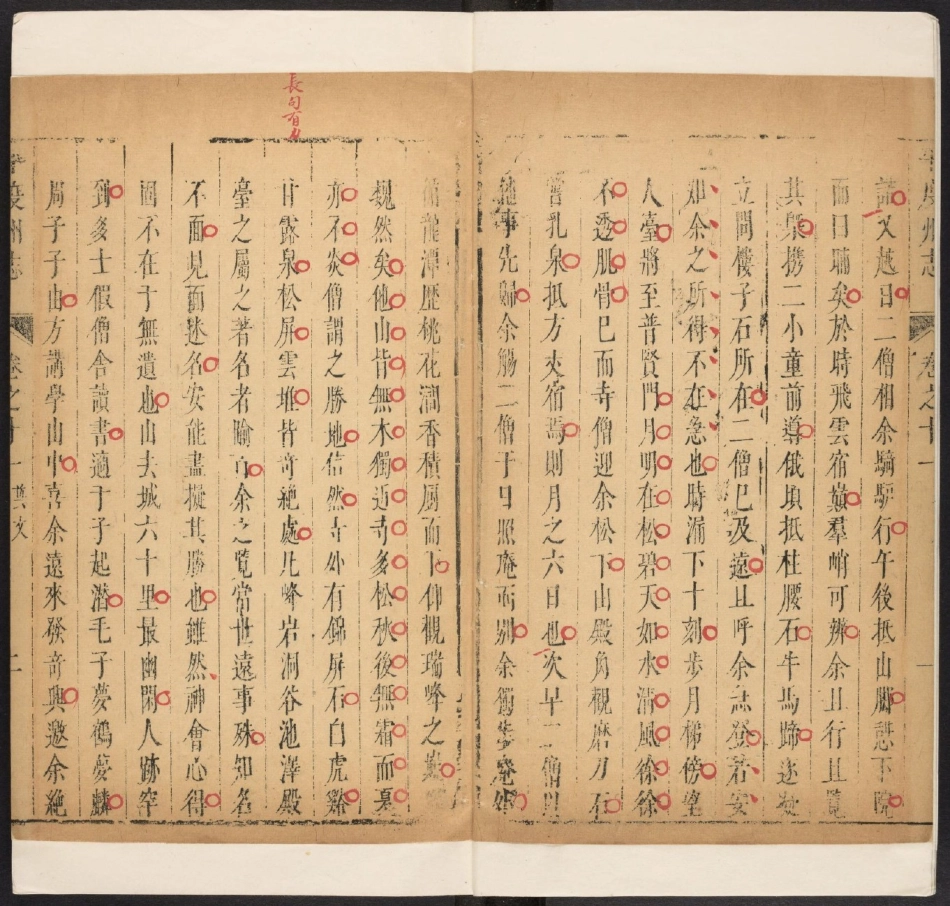 又越日二僧相余騎驢行午後抵山腳憩下院
而日晡矣於時飛雲宿巔羣峭可辨余且行且覽
其槩攜二小童前導俄頃抵柱腰石牛馬蹄迹
立間樓子石所在二僧已及遠且呼余言登若安
如余之所得不在急也時漏下十刻步月梯傍望
人臺將至普賢門月明在松碧天如水清風徐徐
不透肌骨已而寺僧迎余松下山殿角觀磨刀石
嘗乳泉抵方丈宿焉則月之六日也次早二僧以
他事先歸余觴二僧于日照庵而別余獨
龍潭歷桃花澗香積廚而下仰觀瑞峰之
巍然矣他山皆無木獨近寺多松秋後無霜而夏
亦不炎僧謂之勝地信然寺外有錦屏石白虎谿
甘露泉松屏雲堆皆奇絕處凡峰岩洞谷池澤殿
臺之屬之著名者踰百余之覽當世遠事殊知名
不面見面迷名安能盡擬其勝也雖然神會心得
固不在于無遺也山去城六十里最幽閒人跡罕
到多士假僧舍讀書適于子起潛毛子夢鶴夢麟
周子子由方講學山中喜余遠來發奇興邀余絕
長句有
州志
卷之十
州志
卷之十 一 藝文 二